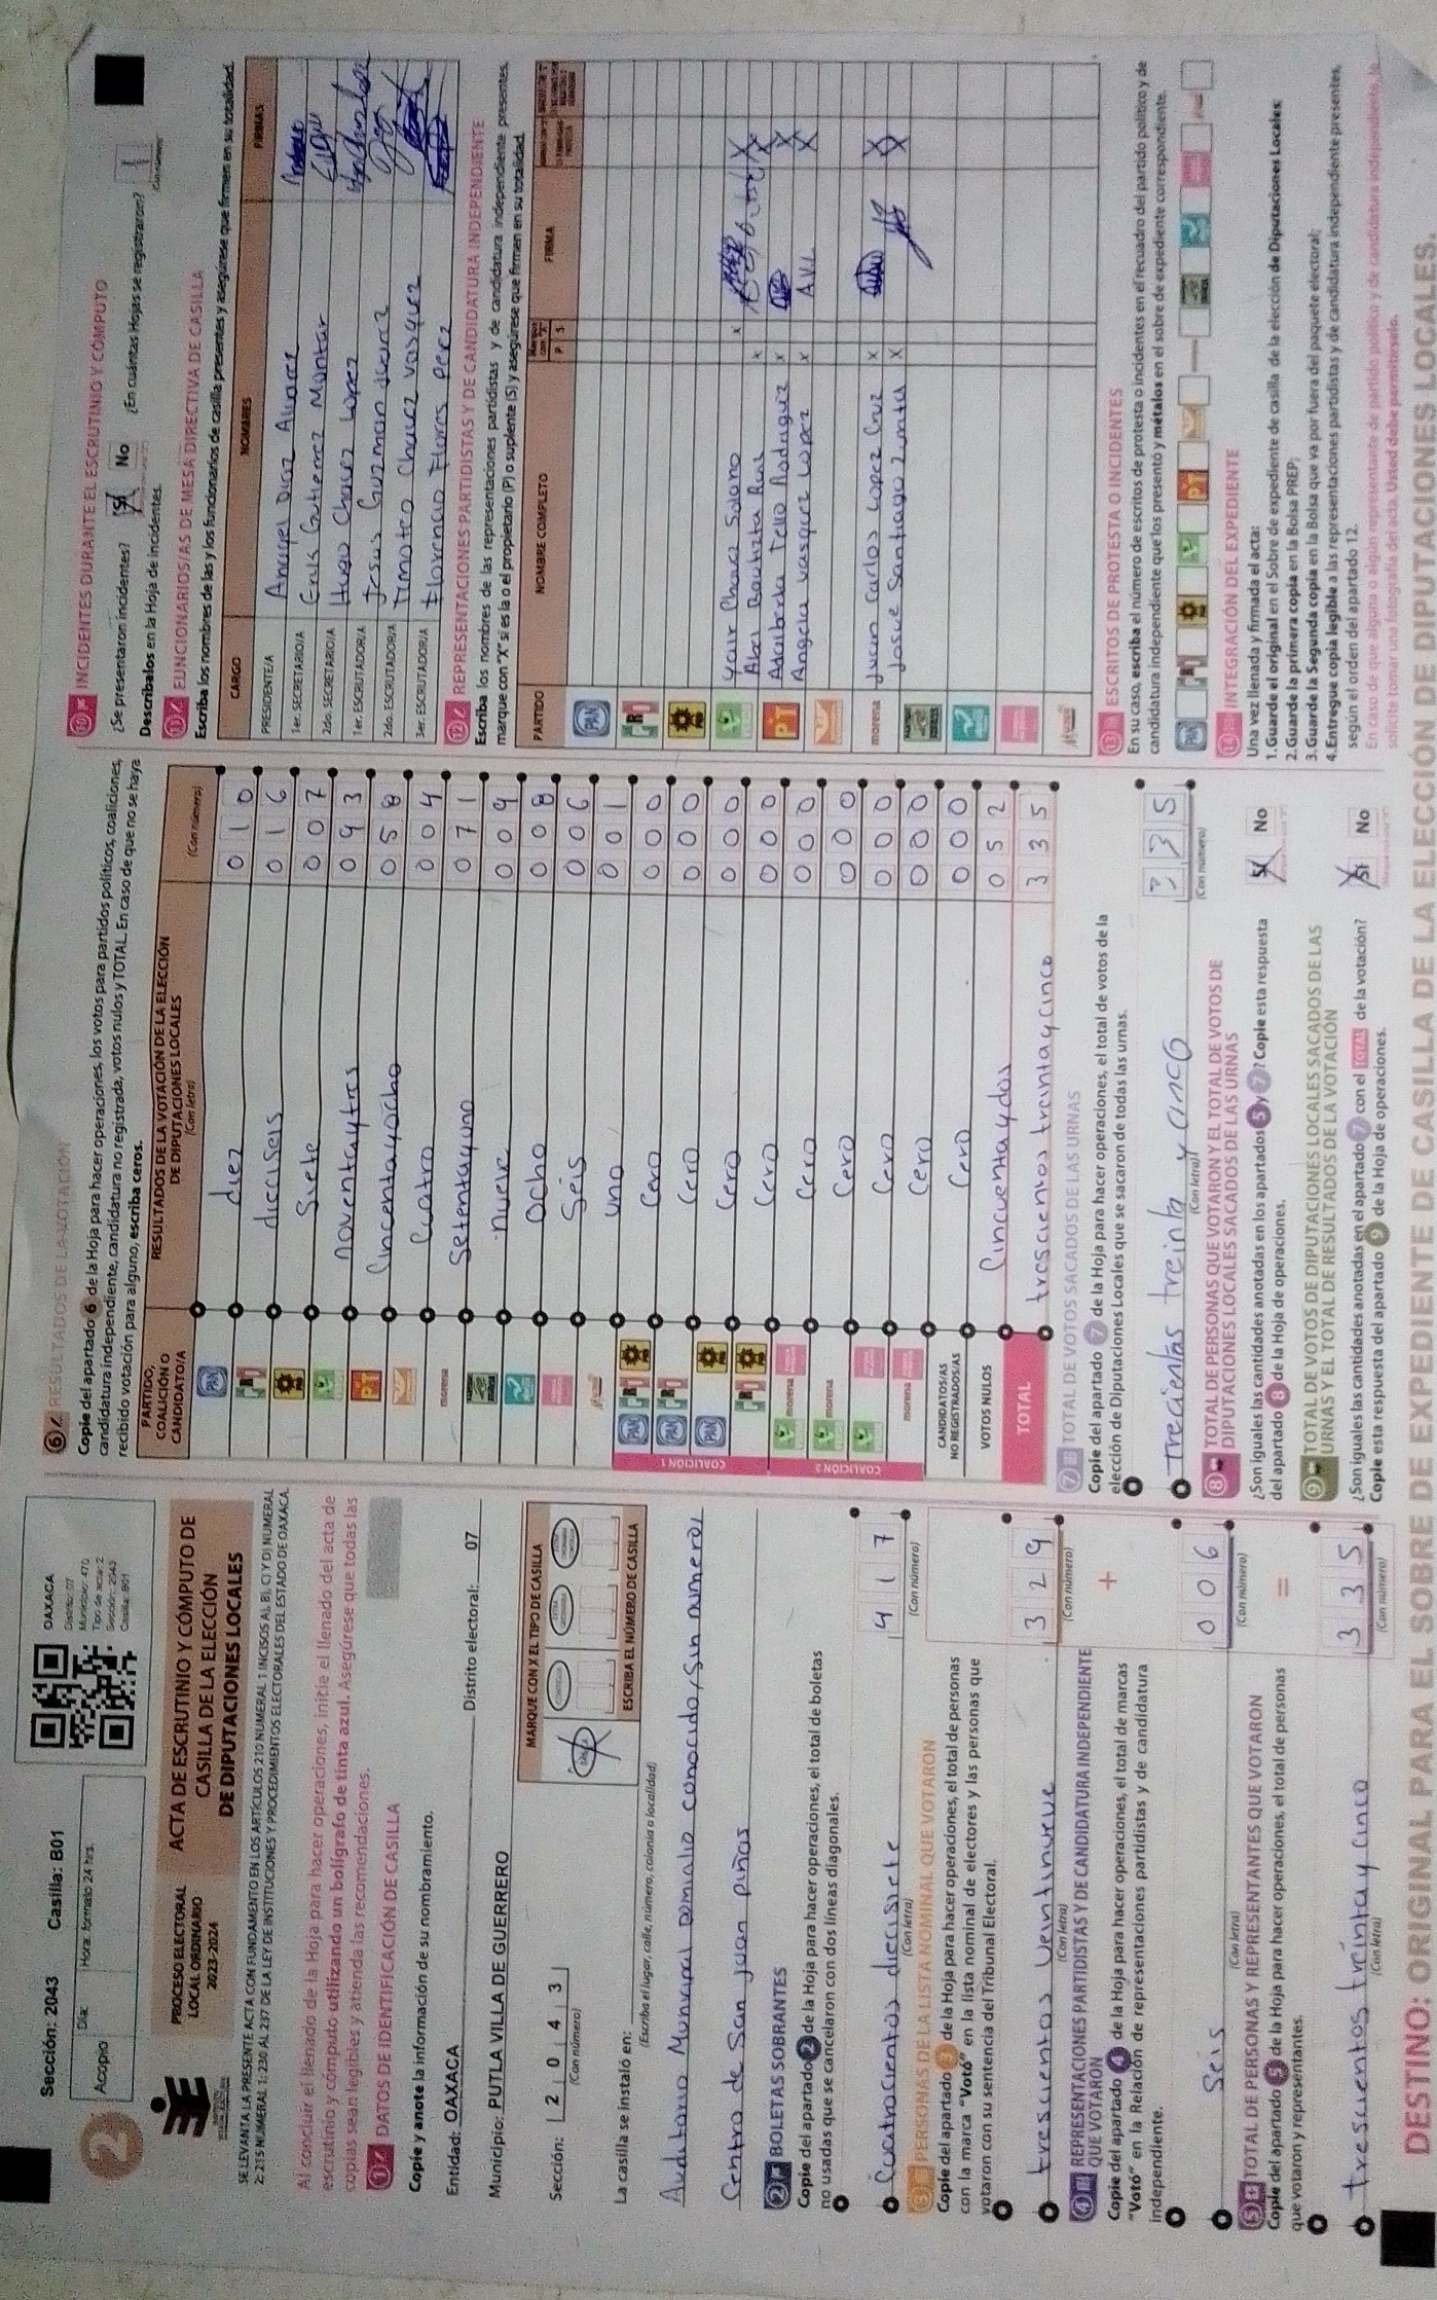 Sección: 2043 Casilla: B01
Acopio Día: Hora: formato 24 hrs.
OAXACA
Distrito: 07
Municipio: 470
Tipo de acta: 2
Sección: 2043
Casilla: B01
2
PROCESO ELECTORAL LOCAL ORDINARIO 2023-2024
ACTA DE ESCRUTINIO Y CÓMPUTO DE
CASILLA DE LA ELECCIÓN
DE DIPUTACIONES LOCALES
SE LEVANTA LA PRESENTE ACTA CON FUNDAMENTO EN LOS ARTÍCULOS 210 NUMERAL 1 INCISOS A), B), C) Y D) NUMERAL
2; 215 NUMERAL 1; 230 AL 237 DE LA LEY DE INSTITUCIONES Y PROCEDIMIENTOS ELECTORALES DEL ESTADO DE OAXACA.
Al concluir el llenado de la Hoja para hacer operaciones, inicie el llenado del acta de
escrutinio y cómputo utilizando un bolígrafo de tinta azul. Asegúrese que todas las
copias sean legibles y atienda las recomendaciones.
1 DATOS DE IDENTIFICACIÓN DE CASILLA
Copie y anote la información de su nombramiento.
Entidad: OAXACA Distrito electoral: 07
Municipio: PUTLA VILLA DE GUERRERO
Sección: 2 0 4 3
(Con número)
MARQUE CON X EL TIPO DE CASILLA
ESCRIBA EL NÚMERO DE CASILLA
La casilla se instaló en:
(Escriba el lugar, calle, número, colonia o localidad)
Municipal Domicilio conocido, sin numero,
Centro de San juan piñas
2 BOLETAS SOBRANTES
Copie del apartado 2 de la Hoja para hacer operaciones, el total de boletas
no usadas que se cancelaron con dos líneas diagonales.
Cuatrocientos diecisiete 4 1 7
(Con letra) (Con número)
3 PERSONAS DE LA LISTA NOMINAL QUE VOTARON
Copie del apartado 3 de la Hoja para hacer operaciones, el total de personas
con la marca "Votó" en la lista nominal de electores y las personas que
votaron con su sentencia del Tribunal Electoral.
trescientos veintinueve 3 2 9
(Con letra) (Con número)
+
4 REPRESENTACIONES PARTIDISTAS Y DE CANDIDATURA INDEPENDIENTE
QUE VOTARON
Copie del apartado 4 de la Hoja para hacer operaciones, el total de marcas
"Votó" en la Relación de representaciones partidistas y de candidatura
independiente.
Seis 0 0 6
(Con letra) (Con número)
=
5 TOTAL DE PERSONAS Y REPRESENTANTES QUE VOTARON
Copie del apartado 5 de la Hoja para hacer operaciones, el total de personas
que votaron y representantes.
trescientos treinta y cinco 3 3 5
(Con letra) (Con número)
6 RESULTADOS DE LA VOTACIÓN
Copie del apartado 6 de la Hoja para hacer operaciones, los votos para partidos políticos, coaliciones,
candidatura independiente, candidatura no registrada, votos nulos y TOTAL. En caso de que no se haya
recibido votación para alguno, escriba ceros.
PARTIDO, COALICIÓN O CANDIDATO/A
RESULTADOS DE LA VOTACIÓN DE LA ELECCIÓN
DE DIPUTACIONES LOCALES
(Con letra) (Con número)
PAN diez 0 1 0
PRI dieciseis 0 1 6
PRD Siete 0 0 7
noventa y tres 0 9 3
PT Cincentayocho 0 5 8
Cuatro 0 0 4
morena Setentayuno 0 7 1
nueve 0 0 9
Ocho 0 0 8
Seis 0 0 6
uno 0 0 1
COALICIÓN 1
PAN PRI PRD Cero 0 0 0
PAN PRI Cero 0 0 0
PAN PRD Cero 0 0 0
PRI PRD Cero 0 0 0
COALICIÓN 2
morena Cero 0 0 0
morena Cero 0 0 0
Cero 0 0 0
morena Cero 0 0 0
CANDIDATOS/AS NO REGISTRADOS/AS Cero 0 0 0
VOTOS NULOS Cincuenta y dos 0 5 2
TOTAL trescientos treinta y cinco 3 3 5
7 TOTAL DE VOTOS SACADOS DE LAS URNAS
Copie del apartado 7 de la Hoja para hacer operaciones, el total de votos de la
elección de Diputaciones Locales que se sacaron de todas las urnas.
trecientos treinta y cinco 3 3 5
(Con letra) (Con número)
8 TOTAL DE PERSONAS QUE VOTARON Y EL TOTAL DE VOTOS DE
DIPUTACIONES LOCALES SACADOS DE LAS URNAS
¿Son iguales las cantidades anotadas en los apartados 5 y 7? Copie esta respuesta
del apartado 8 de la Hoja de operaciones.
Sí No
9 TOTAL DE VOTOS DE DIPUTACIONES LOCALES SACADOS DE LAS
URNAS Y EL TOTAL DE RESULTADOS DE LA VOTACIÓN
¿Son iguales las cantidades anotadas en el apartado 7 con el TOTAL de la votación?
Copie esta respuesta del apartado 9 de la Hoja de operaciones.
Sí No
10 INCIDENTES DURANTE EL ESCRUTINIO Y CÓMPUTO
¿Se presentaron incidentes? Sí No ¿En cuántas Hojas se registraron? 1
Descríbalos en la Hoja de incidentes.
11 FUNCIONARIOS/AS DE MESA DIRECTIVA DE CASILLA
Escriba los nombres de las y los funcionarios de casilla presentes y asegúrese que firmen en su totalidad.
CARGO NOMBRES FIRMAS
PRESIDENTE/A Anuyel Diaz Alvarez
1er. SECRETARIO/A Enis Gutierrez Montar
2do. SECRETARIO/A Hugo Chavez Lopez
1er. ESCRUTADOR/A Jesus Guzman
2do. ESCRUTADOR/A Timoteo Chavez Vasquez
3er. ESCRUTADOR/A Florencio Flores perez
12 REPRESENTACIONES PARTIDISTAS Y DE CANDIDATURA INDEPENDIENTE
Escriba los nombres de las representaciones partidistas y de candidatura independiente presentes,
marque con "X" si es la o el propietario (P) o suplente (S) y asegúrese que firmen en su totalidad.
PARTIDO NOMBRE COMPLETO P S FIRMA
PAN
PRI
PRD
Yair Chavez Solano X X
Abel Bautista Ruis X X
PT Adalberta Tello Rodriguez X X
Angela Vasquez Lopez X A.V.L. X
morena Juan Carlos Lopez Cruz X X
Josue Santiago Zurita X X
13 ESCRITOS DE PROTESTA O INCIDENTES
En su caso, escriba el número de escritos de protesta o incidentes en el recuadro del partido político y de
candidatura independiente que los presentó y métalos en el sobre de expediente correspondiente.
14 INTEGRACIÓN DEL EXPEDIENTE
Una vez llenada y firmada el acta:
1. Guarde el original en el Sobre de expediente de casilla de la elección de Diputaciones Locales;
2. Guarde la primera copia en la Bolsa PREP;
3. Guarde la Segunda copia en la Bolsa que va por fuera del paquete electoral;
4. Entregue copia legible a las representaciones partidistas y de candidatura independiente presentes,
según el orden del apartado 12.
En caso de que alguna o algún representante de partido político y de candidatura independiente, le
solicite tomar una fotografía del acta. Usted debe permitírselo.
DESTINO: ORIGINAL PARA EL SOBRE DE EXPEDIENTE DE CASILLA DE LA ELECCIÓN DE DIPUTACIONES LOCALES.